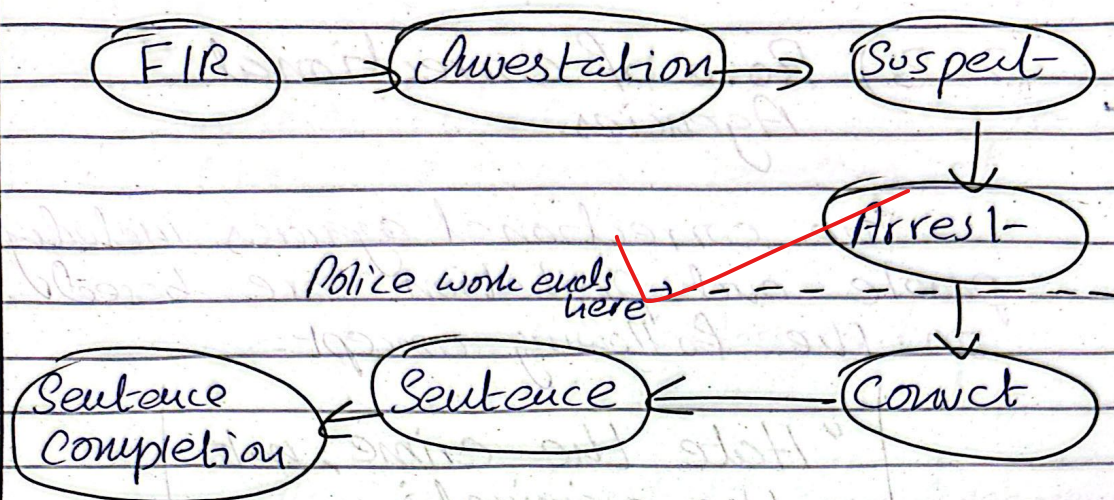 FIR
Investation
Suspect
Arrest
Police work ends
here
Convct
Sentence
Sentence
Completion